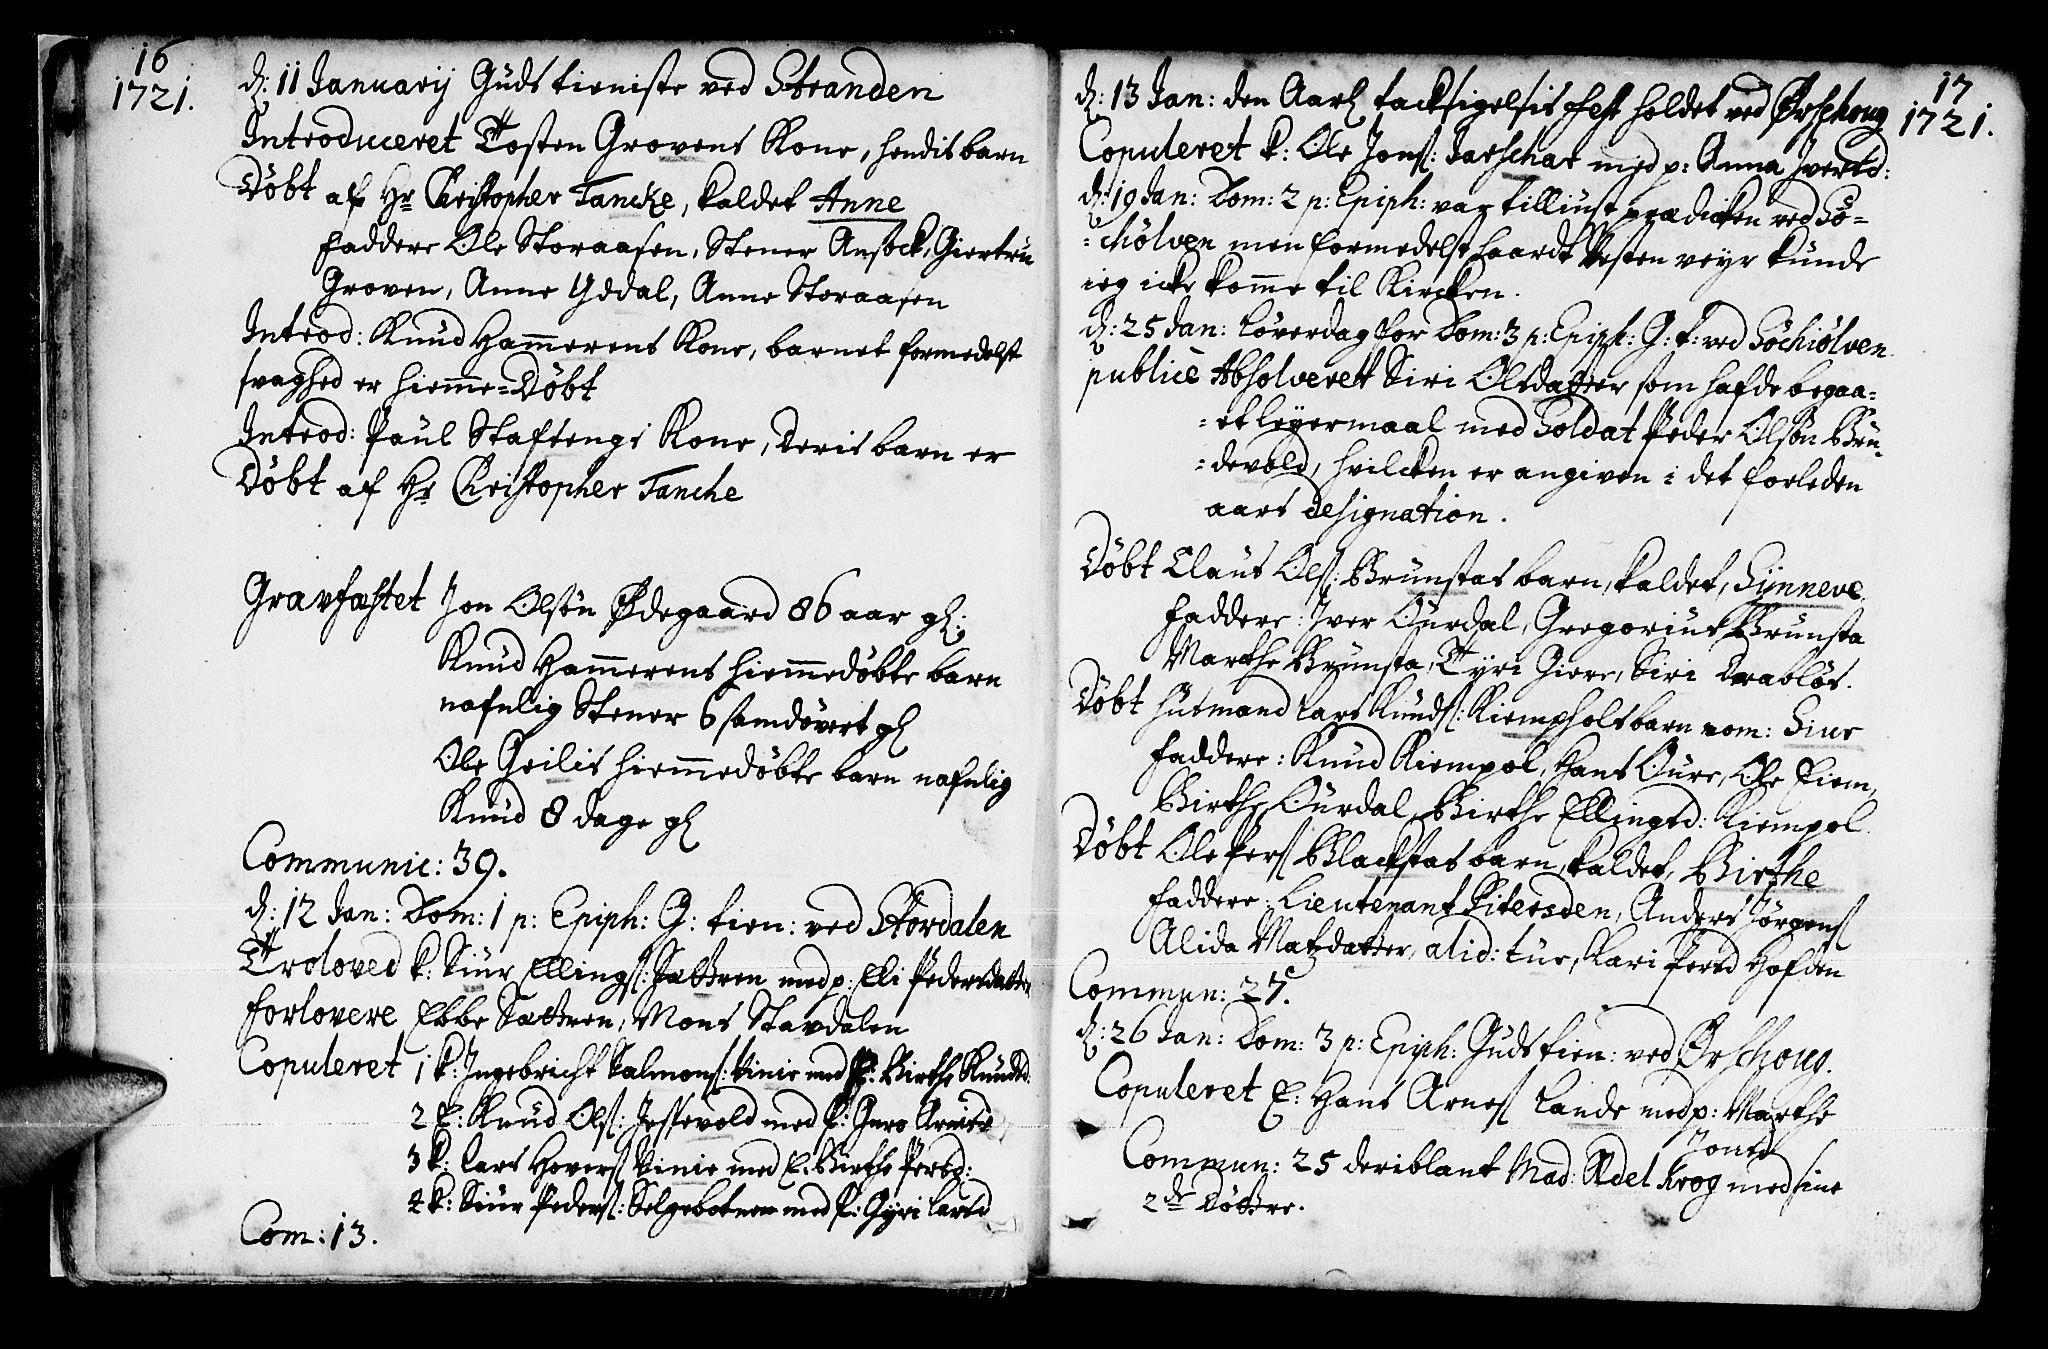 16
1721.
d: 11 Januarij Guds tieniste ved Stranden
Introduceret Tosten Grovens Kone, hendis barn
Döbt af Hr Christopher Tancke, kaldet Anne
faddere Ole Storaasen, Stener Ansock, Giertru
Groven, Anne Uddal, Anne Storaasen
Introd: Knud Hammerens Kone, barnet formedelst
svaghed er hiemme-Döbt
Introd: Paul Staftengs Kone, Deris barn er
Döbt af Hr Christopher Tanche
Gravfæstet Jon Olsön Ödegaard 86 aar gl:
Knud Hammerens hiemmedöbte barn
nafnlig Stener 6 samdövert gl
Ole Geilis hiemmedöbte barn nafnlig
Knud 8 dage gl
Communic: 39.
d: 12 Jan: Dom: 1 p: Epiph: G: tien: ved Stordalen
Troloved k: Siur Ellings: Sættren med p: Eli Pedersdatter
forlovere Ebbe Sættren, Mons Stavdalen
Copuleret 1 k: Ingebricht Salmons: Vinie med P: Birthe Knudsd:
2 E: Knud Ols: Jessevold med P: Guro
3 k: Lars Hovers Vinie med E: Birthe Persd:
4 k: Siur Peders: Selgebotnen med P: Gyri Larsd
Com: 13.
17
1721.
d: 13 Jan: den Aarl tacksigelsis Fest holdet ved Örschoug
Copuleret k: Ole Jons: Jarschar med p: Anna Iversd:
d: 19 Jan: Dom: 2 p: Epiph: var tilliust prædicken ved Sö-
-chölven men formedelst haardt Vesten veyr kunde
ieg icke komme til Kircken.
d: 25 Jan: Löverdag for Dom: 3 p: Epiph: G. t: ved Söchiölven
publicè Absolveret Siri Olsdatter som hafde begaa-
-et leyermaal med Soldat Peder Olsön Bru-
-devold, hvilcken er angiven i det forleden
aars designation.
Döbt Claus Ols: Brunstas barn, kaldet, Synneve.
Faddere: Iver Ourdal, Gregorius Brunsta
Marthe Brunsta, Tyri Giere, Siri Drablös.
Döbt husmand Lars Knuds: Kiemphols barn nom: Siur
Faddere: Knud Kiempol, Hans Oure, Ole Eiem,
Birthe Ourdal, Birthe Ellingsd: Kiempol.
Döbt Ole Pers Blackstas barn, kaldet, Birthe
Faddere: Lieutenant Pitersden, Anders Jörgens
Alida Matzdatter, alid: tus, Kari Persd Hofden
Commun: 27.
d: 26 Jan: Dom: 3 p: Epiph: Guds tien: ved Örschoug.
Copuleret E: Hans Arnes Lande med p: Marthe
Jonsd
Commun: 25 deriblant Mad: Adel Krog med sine
2de Döttre.